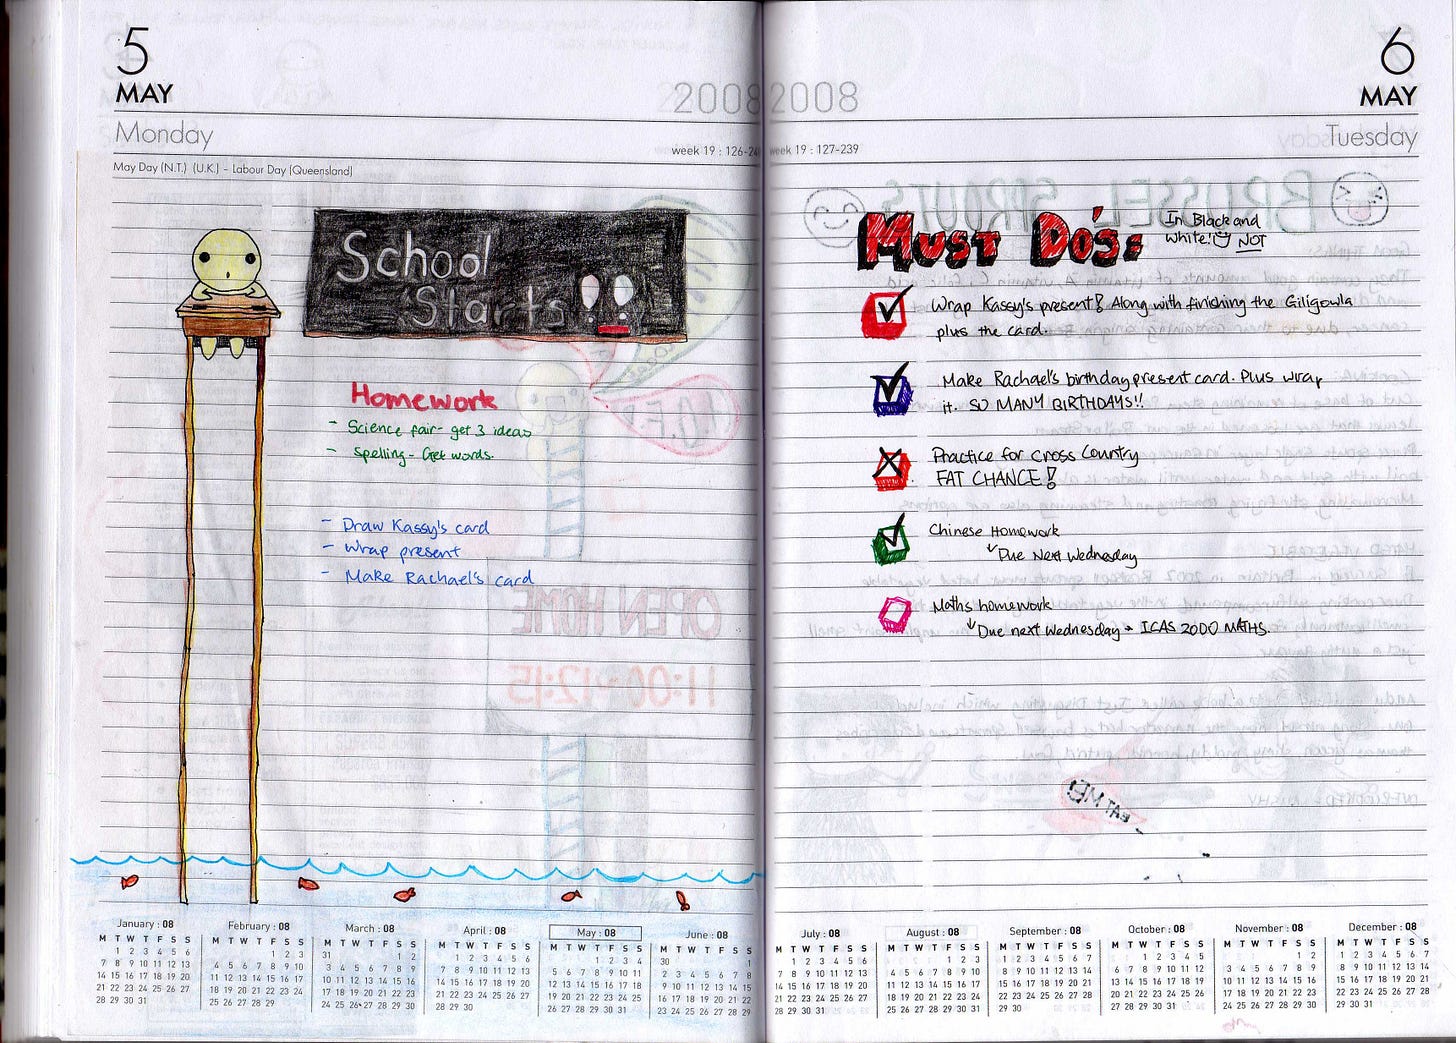 5
MAY
2008
Monday
week 19 : 126-24
May Day (N.T.) (U.K.) – Labour Day (Queensland)
School
Starts!!
Homework
- Science fair- get 3 ideas
- Spelling- Get words.
- Draw Kassy's card
- Wrap present
- Make Rachael's card
January : 08
M T W T F S S
1 2 3 4 5 6
7 8 9 10 11 12 13
14 15 16 17 18 19 20
21 22 23 24 25 26 27
28 29 30 31
February : 08
M T W T F S S
1 2 3
4 5 6 7 8 9 10
11 12 13 14 15 16 17
18 19 20 21 22 23 24
25 26 27 28 29
March : 08
M T W T F S S
31 1 2
3 4 5 6 7 8 9
10 11 12 13 14 15 16
17 18 19 20 21 22 23
24 25 26 27 28 29 30
April : 08
M T W T F S S
1 2 3 4 5 6
7 8 9 10 11 12 13
14 15 16 17 18 19 20
21 22 23 24 25 26 27
28 29 30
May : 08
M T W T F S S
1 2 3 4
5 6 7 8 9 10 11
12 13 14 15 16 17 18
19 20 21 22 23 24 25
26 27 28 29 30 31
June : 08
M T W T F S S
30 1
2 3 4 5 6 7 8
9 10 11 12 13 14 15
16 17 18 19 20 21 22
23 24 25 26 27 28 29
6
MAY
2008
Tuesday
week 19 : 127-239
Must Do's:
In Black and
White! NOT
Wrap Kassy's present! Along with finishing the Giligowla
plus the card.
Make Rachael's birthday present card. Plus wrap
it. SO MANY BIRTHDAYS!!
Practice for Cross Country
FAT CHANCE!
Chinese Homework
Due Next Wednesday
Maths homework
Due next Wednesday → ICAS 2000 MATHS.
EAT ME
July : 08
M T W T F S S
1 2 3 4 5 6
7 8 9 10 11 12 13
14 15 16 17 18 19 20
21 22 23 24 25 26 27
28 29 30 31
August : 08
M T W T F S S
1 2 3
4 5 6 7 8 9 10
11 12 13 14 15 16 17
18 19 20 21 22 23 24
25 26 27 28 29 30 31
September : 08
M T W T F S S
1 2 3 4 5 6 7
8 9 10 11 12 13 14
15 16 17 18 19 20 21
22 23 24 25 26 27 28
29 30
October : 08
M T W T F S S
1 2 3 4 5
6 7 8 9 10 11 12
13 14 15 16 17 18 19
20 21 22 23 24 25 26
27 28 29 30 31
November : 08
M T W T F S S
1 2
3 4 5 6 7 8 9
10 11 12 13 14 15 16
17 18 19 20 21 22 23
24 25 26 27 28 29 30
December : 08
M T W T F S S
1 2 3 4 5 6 7
8 9 10 11 12 13 14
15 16 17 18 19 20 21
22 23 24 25 26 27 28
29 30 31